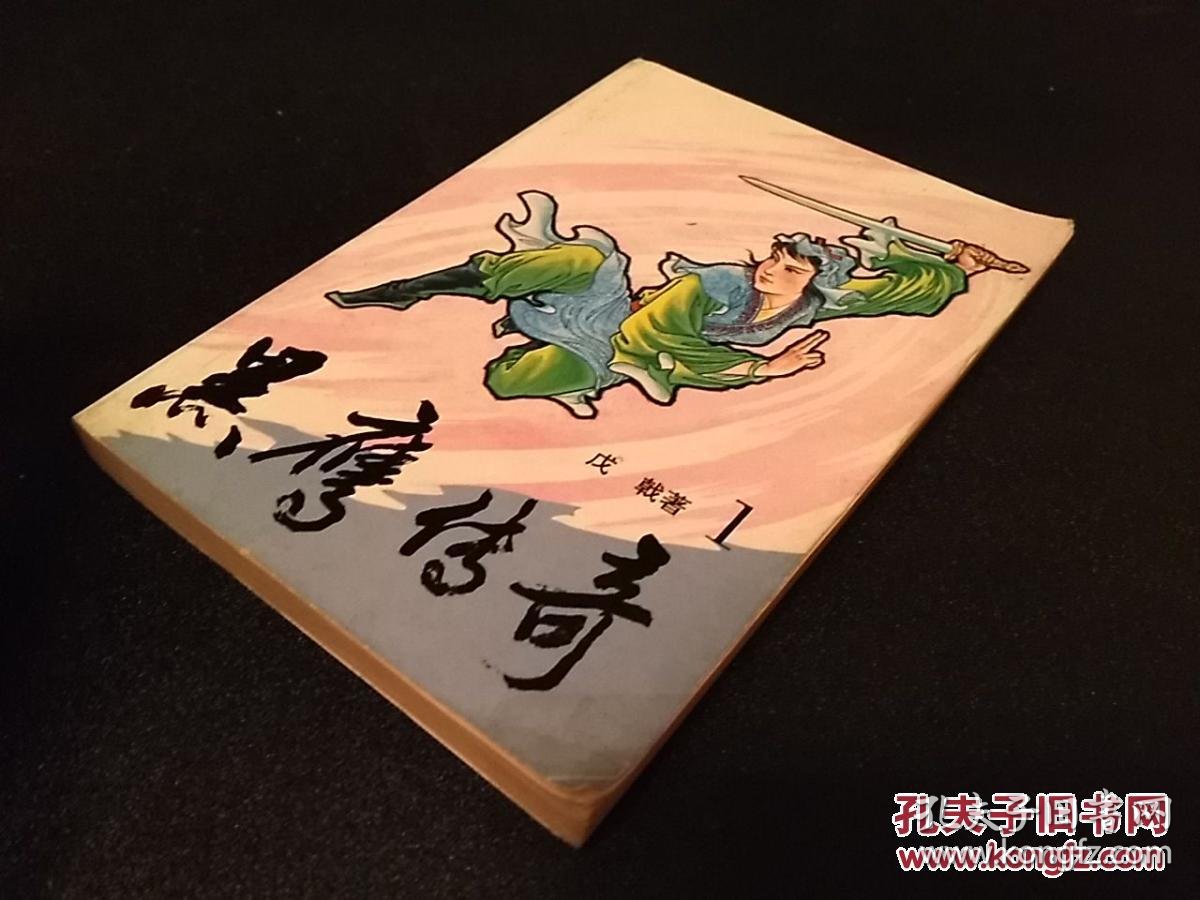 黑鹰传奇
戊戟著
1
孔夫子旧书网
www.kongfz.com